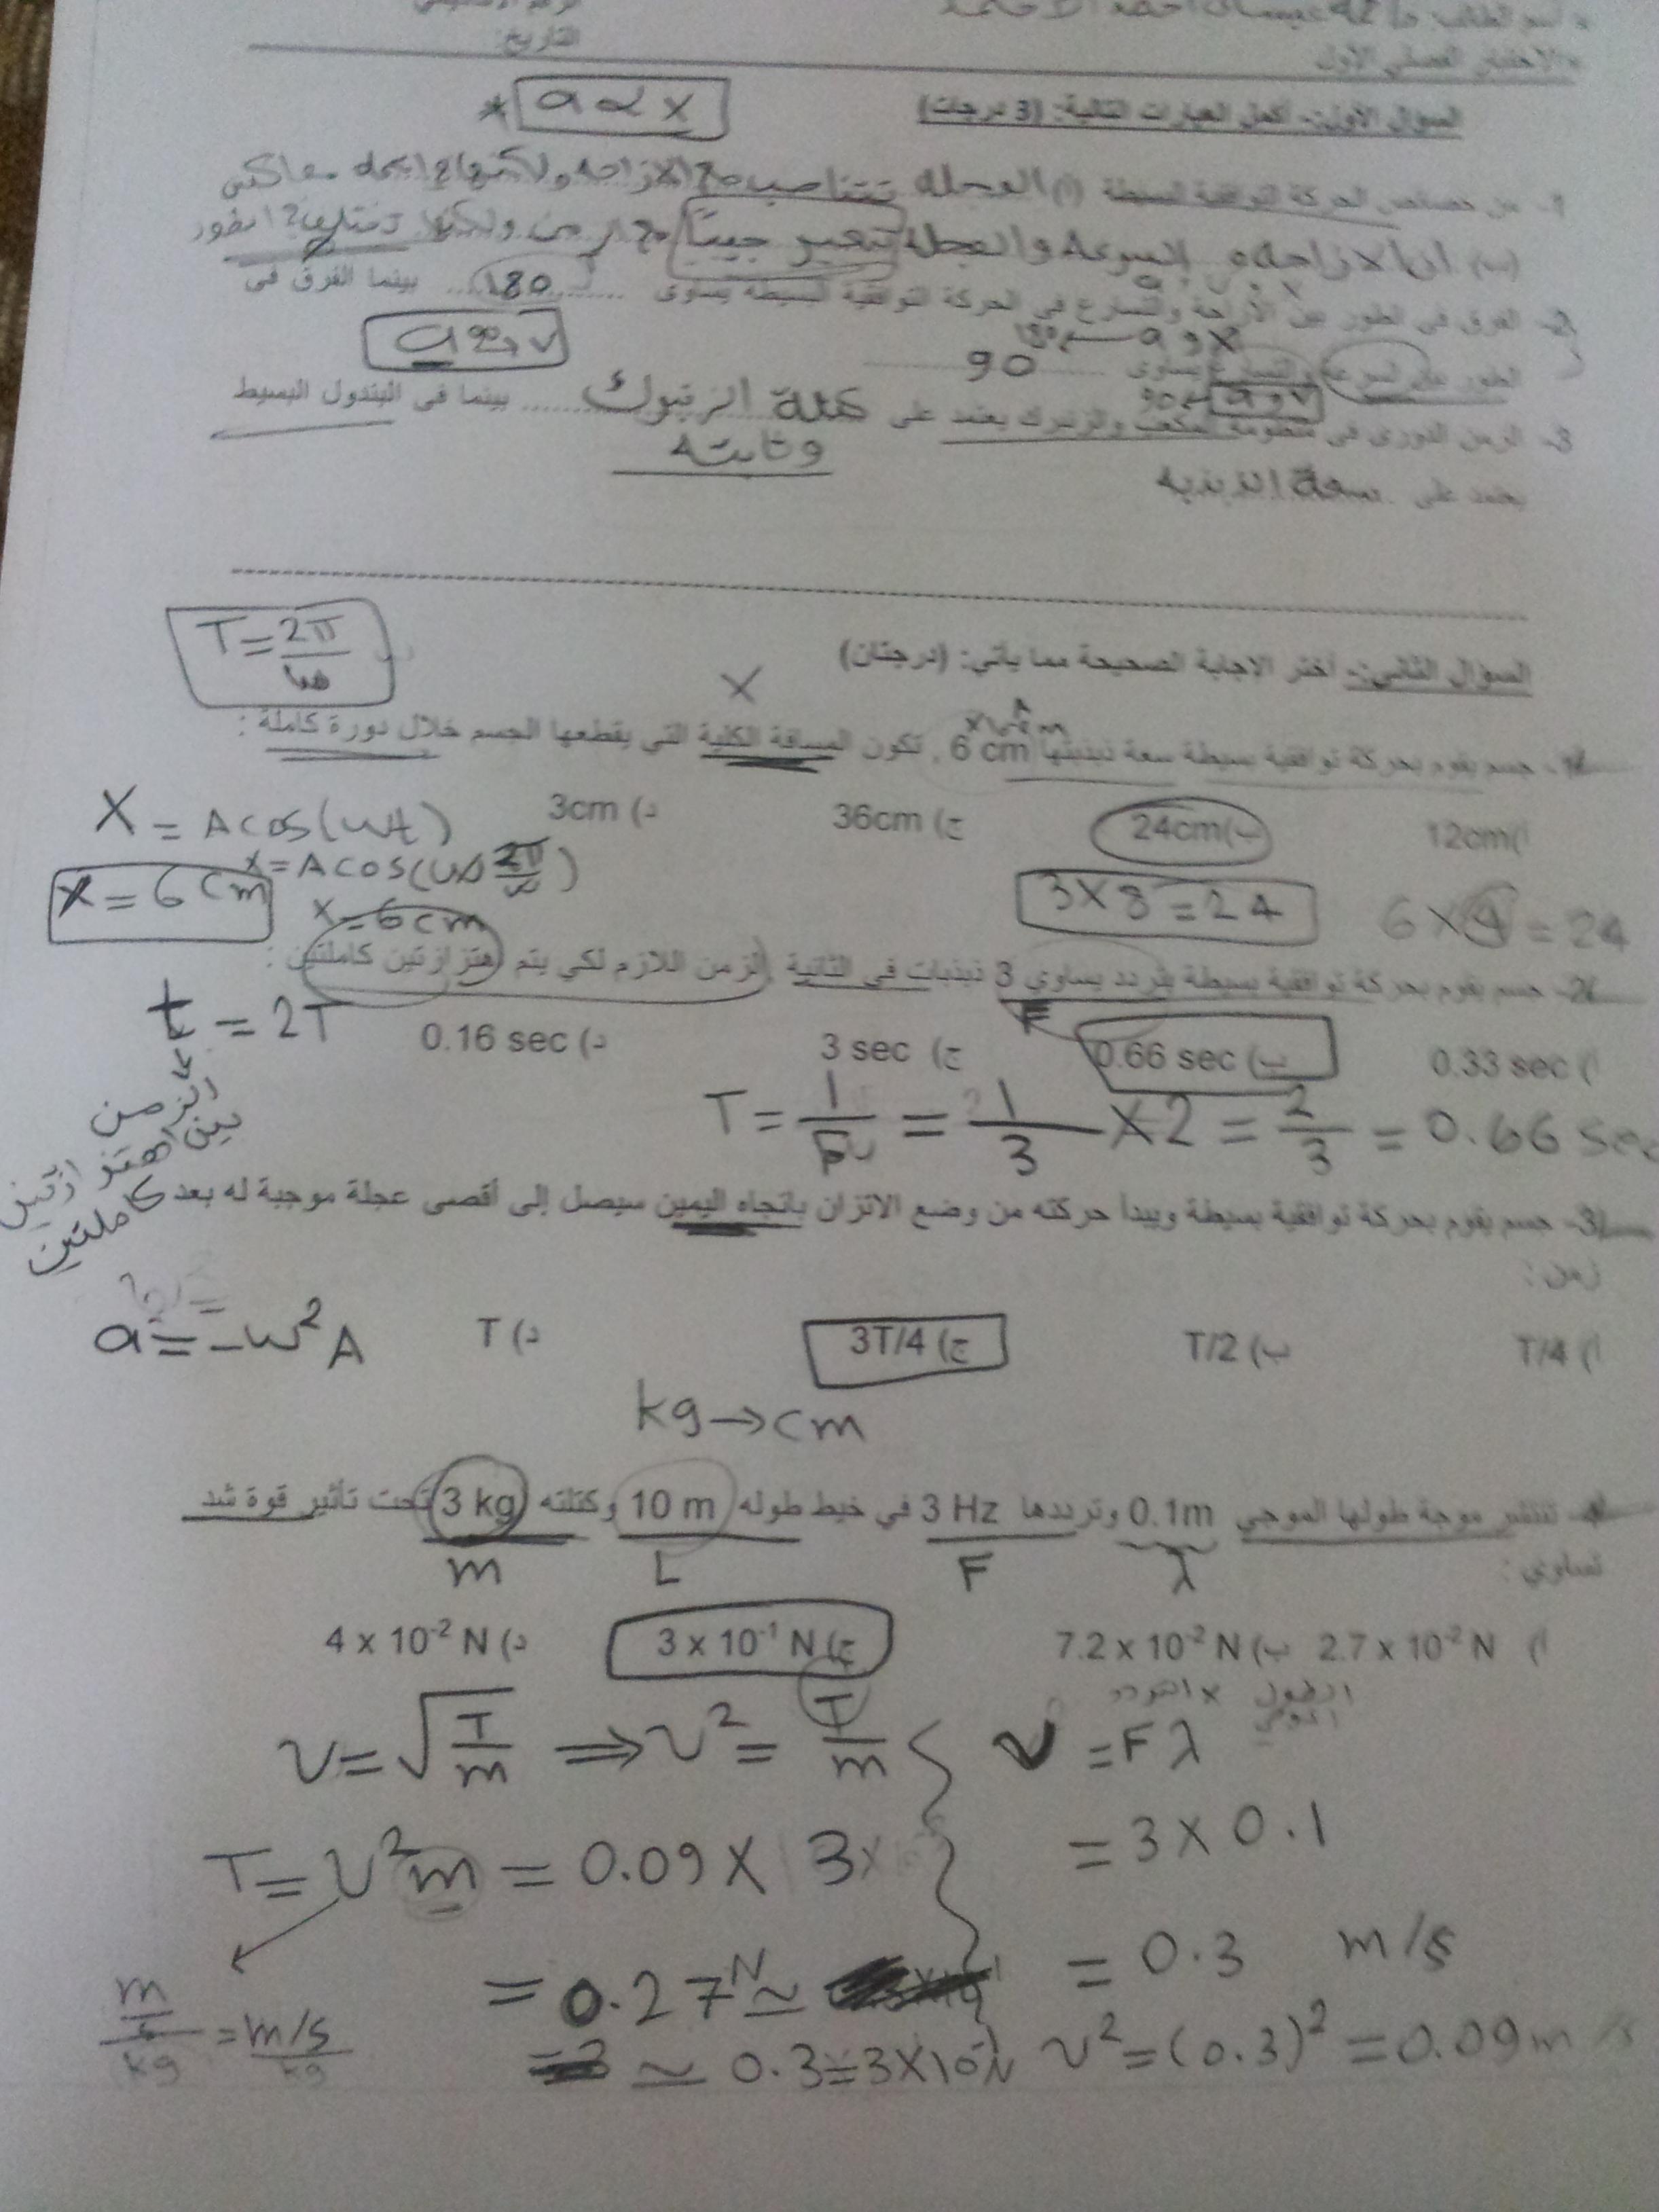 * اسم الطالب:
التاريخ:
* الاختبار الفصلي الاول
السؤال الأول:- أكمل العبارات التالية: (3 درجات)
* a α x
1- من خصائص الحركة التوافقية البسيطة (أ) العجله تتناسب مع الازاحه ولكنها في اتجاه معاكس
(ب) ان الازاحه و السرعة والعجلة تتغير جيبيًا مع الزمن ولكنها تختلف في الطور
2- الفرق في الطور بين الأزاحة والتسارع في الحركة التوافقية البسيطة يساوى 180 بينما الفرق في
180 ← a و x
a و v
الطور بين السرعة والتسارع يساوى 90
90 ← a و v
3- الزمن الدورى في منظومة المكعب والزنبرك يعتمد على كتلة الزنبرك بينما في البندول البسيط
وثابته
يعتمد على سعة الذبذبه
T = 2π/ω
السؤال الثاني:- أختر الاجابة الصحيحة مما يأتي: (درجتان)
X
A
1- جسم يقوم بحركة توافقية بسيطة سعة ذبذبتها 6 cm , تكون المسافة الكلية التي يقطعها الجسم خلال دورة كاملة :
أ) 12cm ب) 24cm ج) 36cm د) 3cm
X = A cos(ωt)
x = A cos(ω × 2π/ω)
x = 6 cm
x = 6 cm
3 X 8 = 24
6 X 4 = 24
2- جسم يقوم بحركة توافقية بسيطة بتردد يساوي 3 ذبذبات في الثانية , الزمن اللازم لكي يتم اهتزازتين كاملتين :
F
t = 2T
أ) 0.33 sec ب) 0.66 sec ج) 3 sec د) 0.16 sec
الزمن
بين اهتزازتين
كاملتين
T = 1/F = 1/3 X 2 = 2/3 = 0.66 sec
3- جسم يقوم بحركة توافقية بسيطة ويبدأ حركته من وضع الاتزان باتجاه اليمين سيصل إلى أقصى عجلة موجبة له بعد
زمن :
أ) T/4 ب) T/2 ج) 3T/4 د) T
a = -ω² A
kg → cm
4- تنتشر موجة طولها الموجي 0.1m وترددها 3 Hz في خيط طوله 10 m وكتلته 3 kg تحت تأثير قوة شد
λ F L m
تساوي :
أ) 2.7 x 10⁻² N ب) 7.2 x 10⁻² N ج) 3 x 10⁻¹ N د) 4 x 10⁻² N
الطول x التردد
الموجي
v = √(T/m) ⇒ v² = T/m
v = F λ
= 3 X 0.1
T = v² m = 0.09 X 3
= 0.3 m/s
= 0.27 N ≃
v² = (0.3)² = 0.09 m
≃ 0.3 = 3 X 10⁻¹ N
m/s/kg = m/s/kg